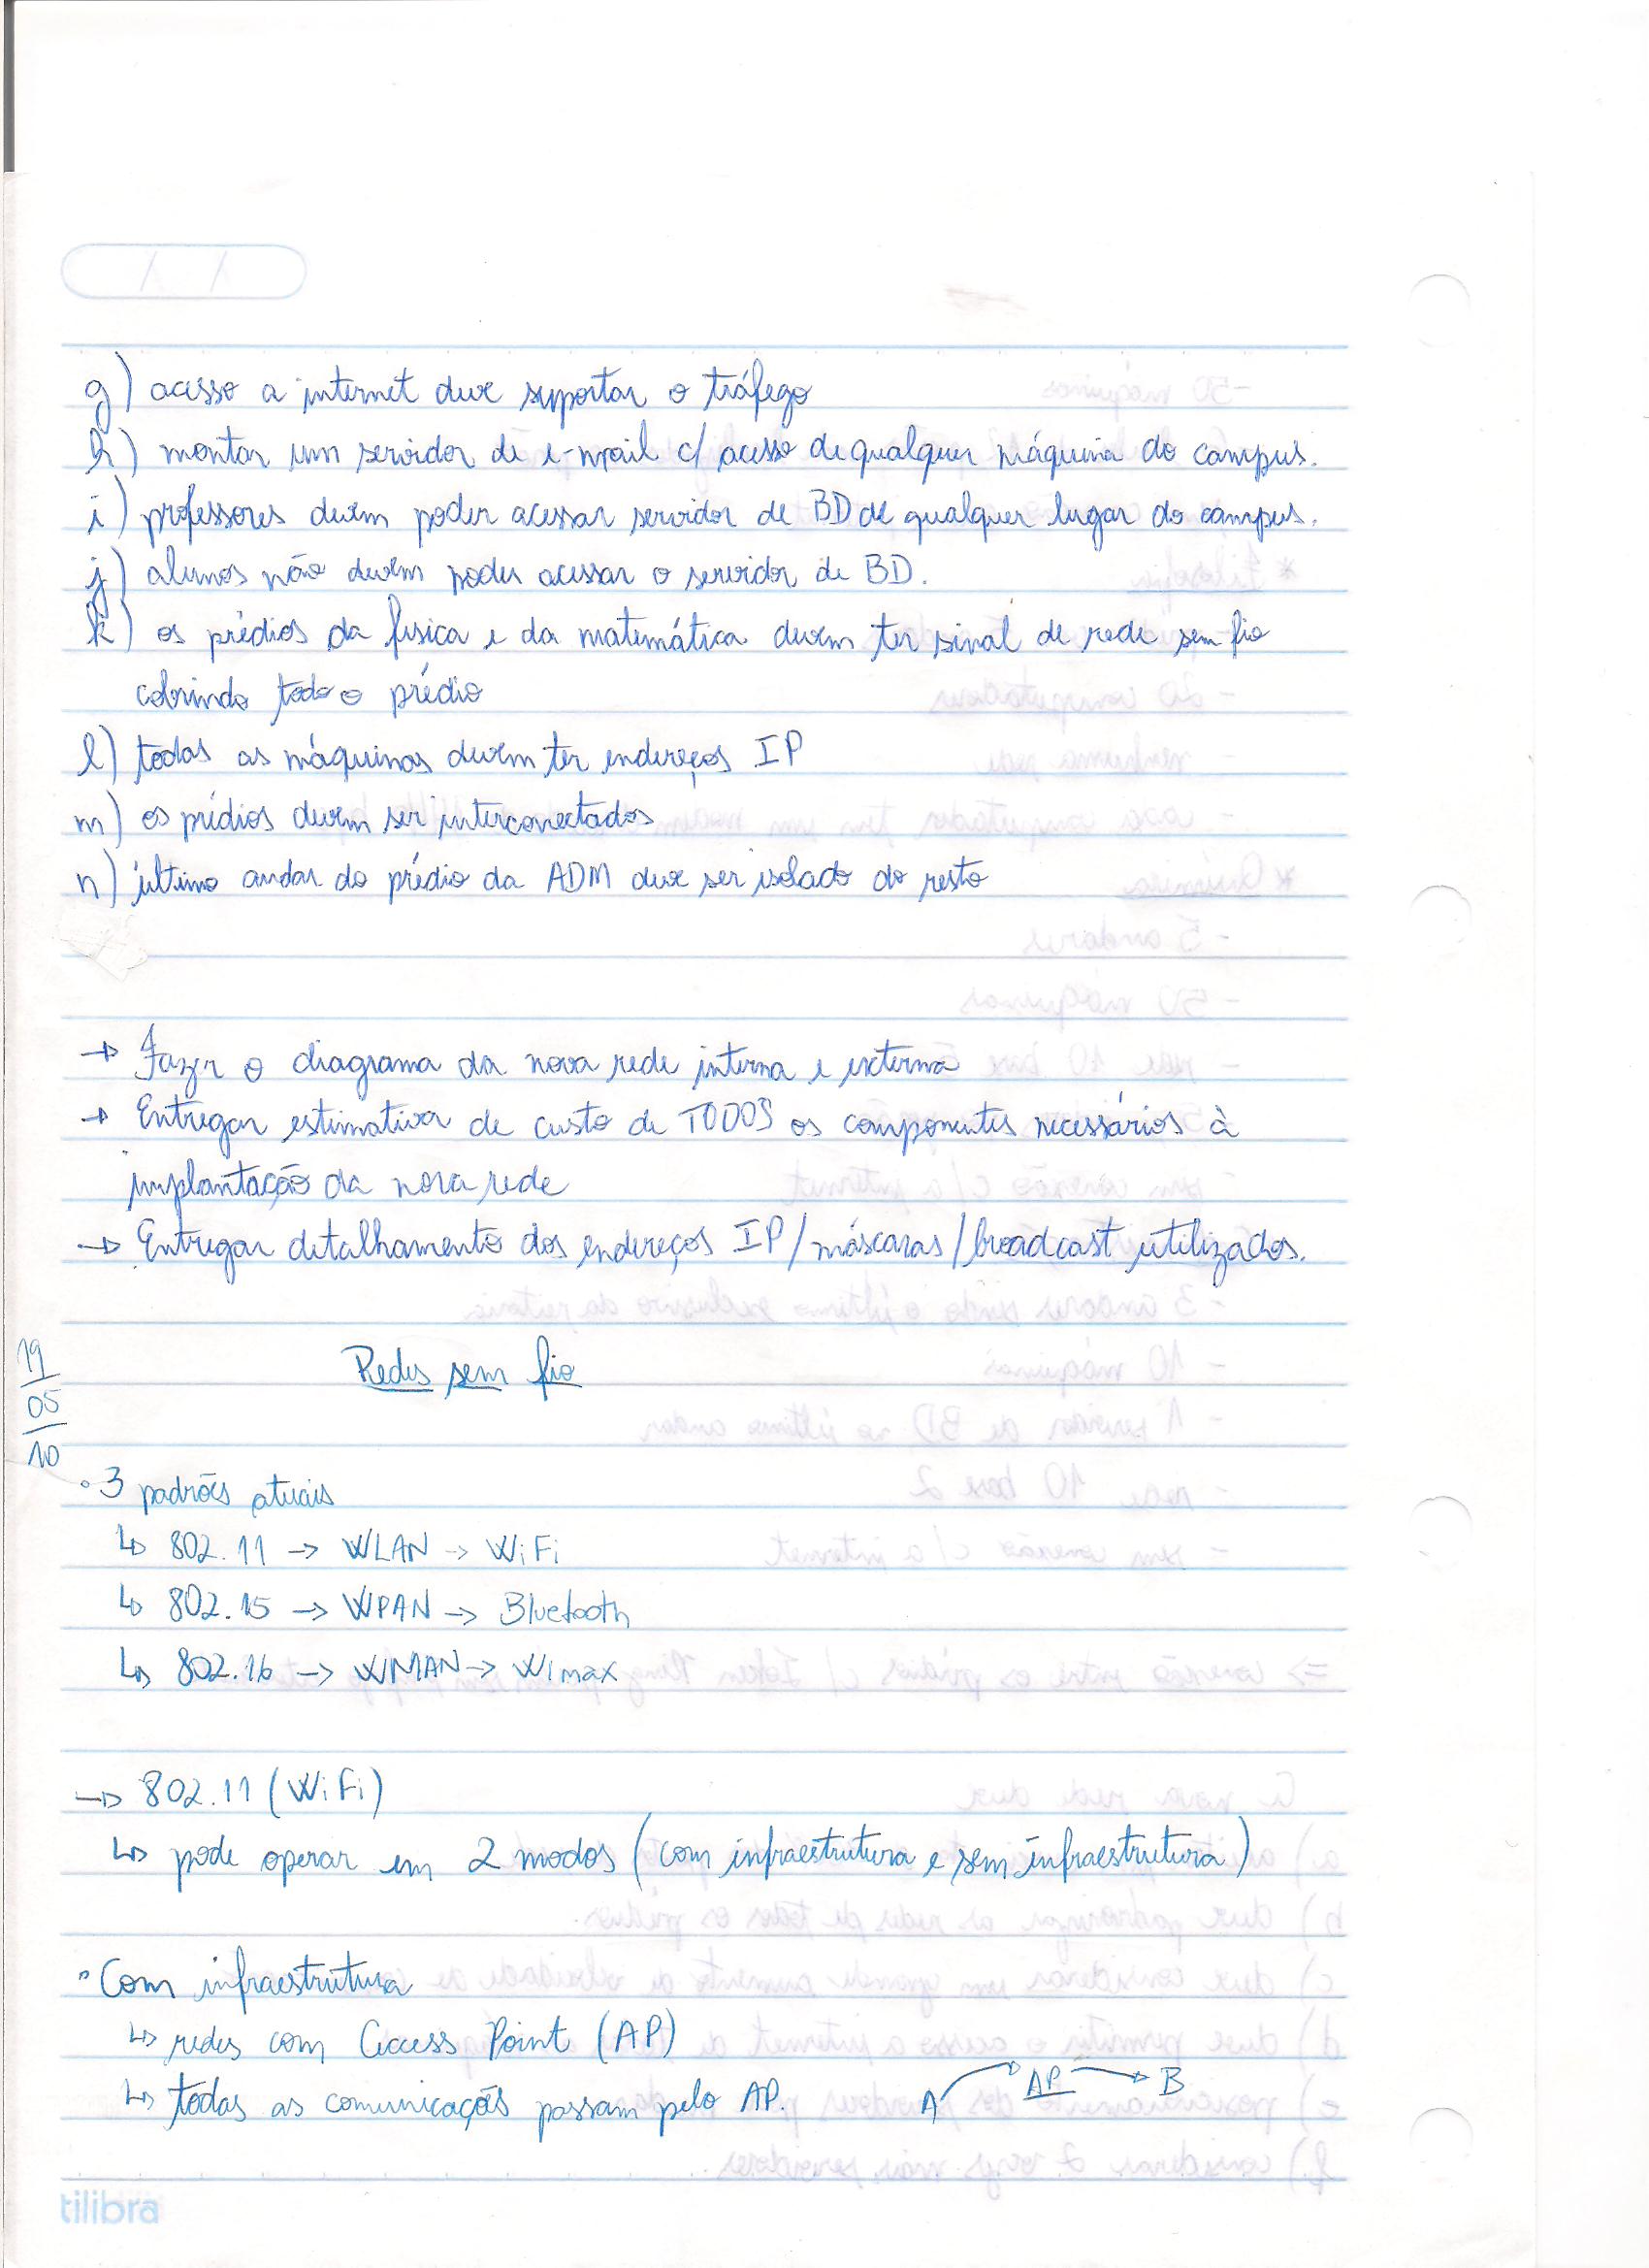 g) acesso a internet deve suportar o tráfego
h) montar um servidor de e-mail c/ acesso de qualquer máquina do campus.
i) professores devem poder acessar servidor de BD de qualquer lugar do campus.
j) alunos não devem poder acessar o servidor de BD.
k) os prédios da física e da matemática devem ter sinal de rede sem fio
cobrindo todo o prédio
l) todas as máquinas devem ter endereços IP
m) os prédios devem ser interconectados
n) último andar do prédio da ADM deve ser isolado do resto
→ Fazer o diagrama da nova rede interna e externa
→ Entregar estimativa de custo de TODOS os componentes necessários à
implantação da nova rede
→ Entregar detalhamento dos endereços IP/máscaras/broadcast utilizados.
19/05/10
Redes sem fio
• 3 padrões atuais
↳ 802.11 → WLAN → WiFi
↳ 802.15 → WPAN → Bluetooth
↳ 802.16 → WMAN → Wimax
→ 802.11 (WiFi)
↳ pode operar em 2 modos (com infraestrutura e sem infraestrutura)
• Com infraestrutura
↳ redes com Access Point (AP)
↳ todas as comunicações passam pelo AP. A → AP → B
tilibra